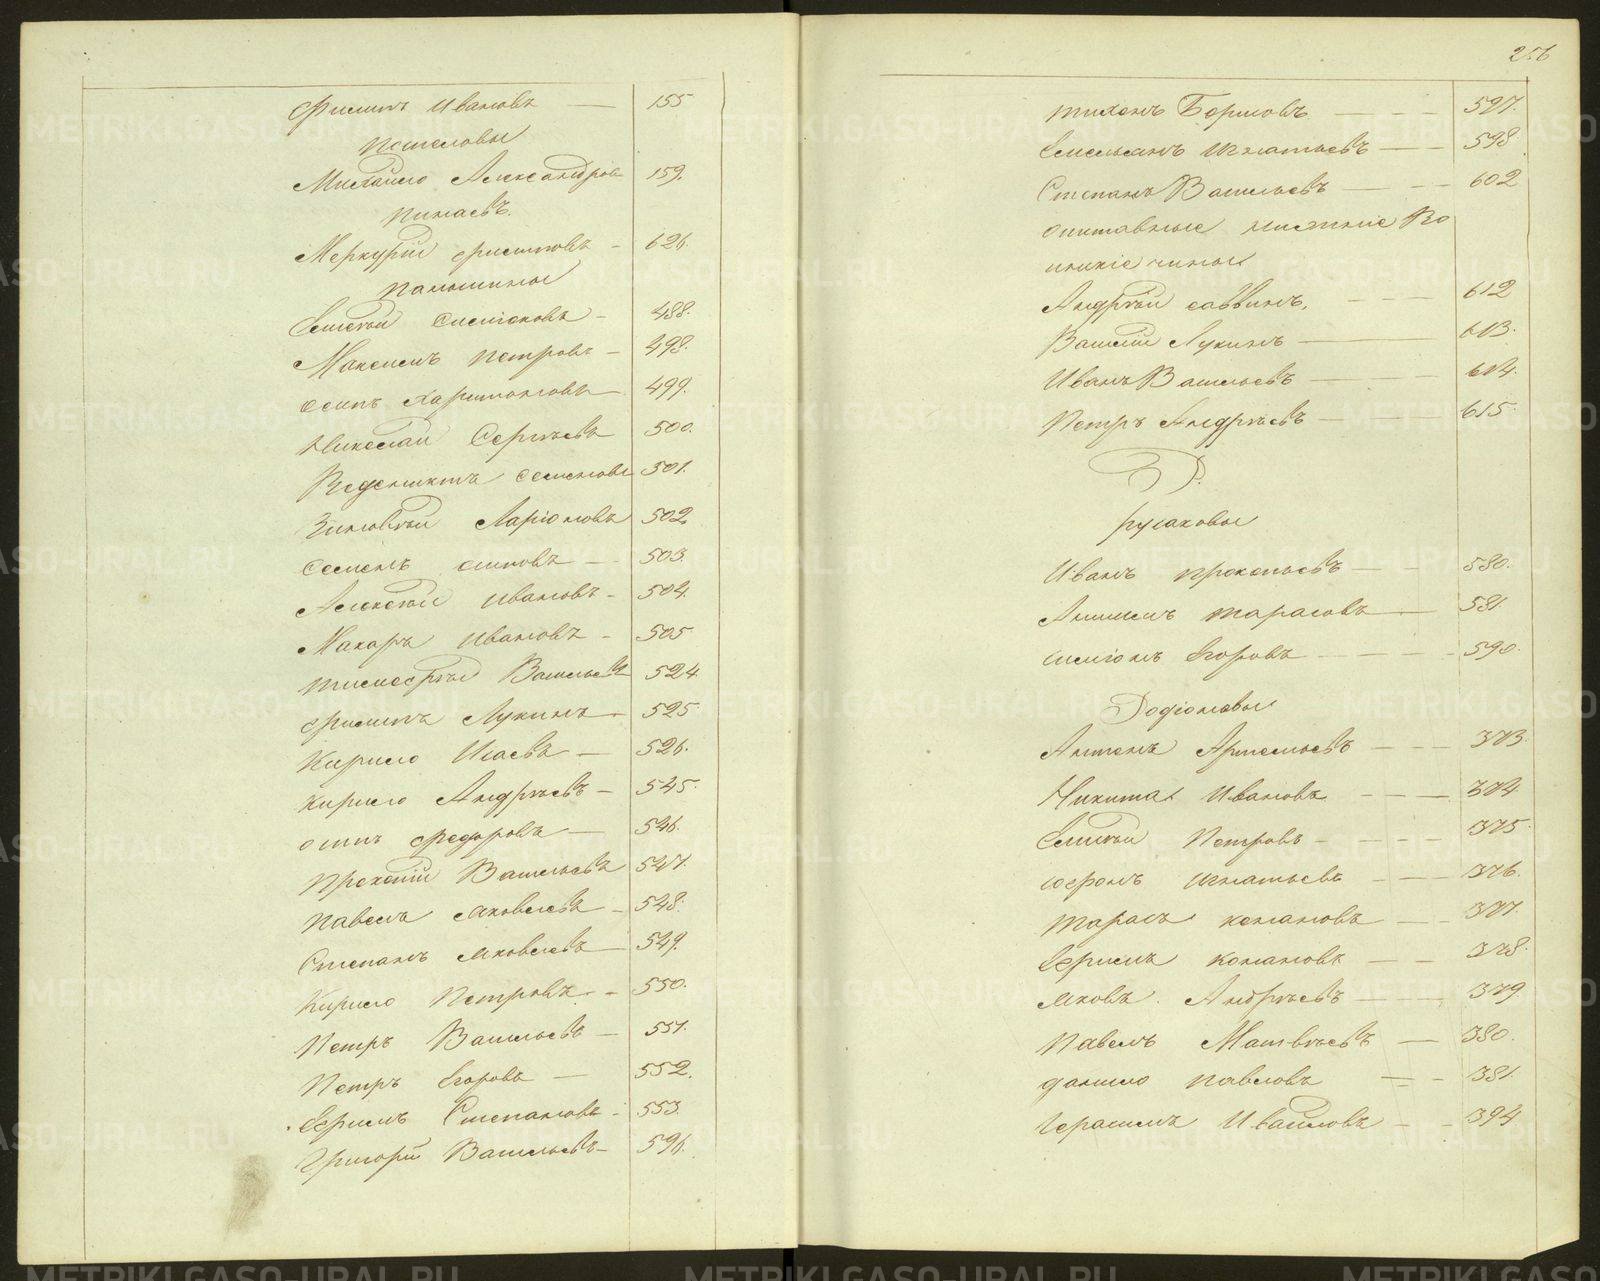 Филипъ Ивановъ — 155
Михайло Александров 159.
Пинаевъ.
Меркурій Филиповъ - 626.
Паньшины
Елисѣй Симіоновъ - 488.
Максимъ Петровъ - 498.
Осипъ Харитоновъ 499.
Николай Сергѣевъ 500.
Веденихтъ Семеновъ 501.
Зиновѣй Ларіоновъ 502.
Семенъ Осиповъ - 503.
Алексѣй Ивановъ - 504.
Макаръ Ивановъ - 505
Тимофѣй Васильевъ 524.
Филипъ Лукинъ 525
Кирило Исаевъ — 526.
Кирило Андрѣевъ - 545.
Осипъ Федоровъ — 546.
Прокопій Васильевъ 547.
Павелъ Яковлевъ - 548.
Степанъ Яковлевъ 549.
Кирило Петровъ - 550.
Петръ Васильевъ — 551.
Петръ Егоровъ — 552.
Ефимъ Степановъ - 553.
Григорій Васильевъ - 596.
256
Тихонъ Борисовъ — 597.
Емельянъ Игнатьевъ — 598.
Степанъ Васильевъ — 602
Општавные нижніе Во
инскіе чины
Андрѣй Саввинъ. — 612
Василій Лукинъ — 613.
Иванъ Васильевъ — 614.
Петръ Андрѣевъ — 615.
Р.
Русаковы
Иванъ Прокопьевъ — 580.
Анисимъ Тарасовъ — 581.
Симіонъ Егоровъ — 590.
Родіоновы
Антонъ Артемьевъ — 373.
Никита Ивановъ — 374
Елисѣй Петровъ — 375.
Софронъ Игнатьевъ — 376.
Тарасъ Конановъ — 377.
Ефимъ Конановъ — 378.
Яковъ Андрѣевъ — 379.
Павелъ Матвѣевъ — 380.
Данило Павловъ — 381.
Герасимъ Ивайловъ - 394.
METRIKI.GASO-URAL.RU